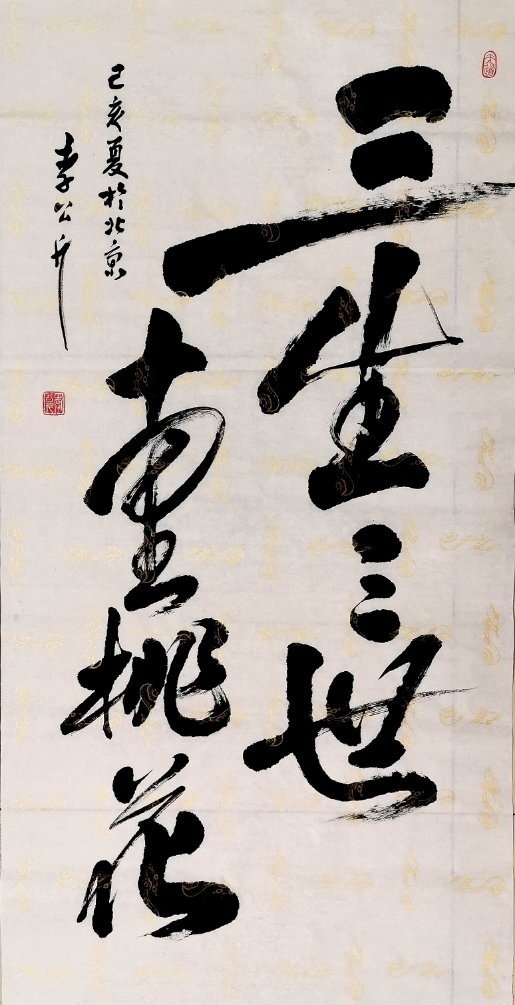 三生三世
十里桃花
己亥夏於北京
李公